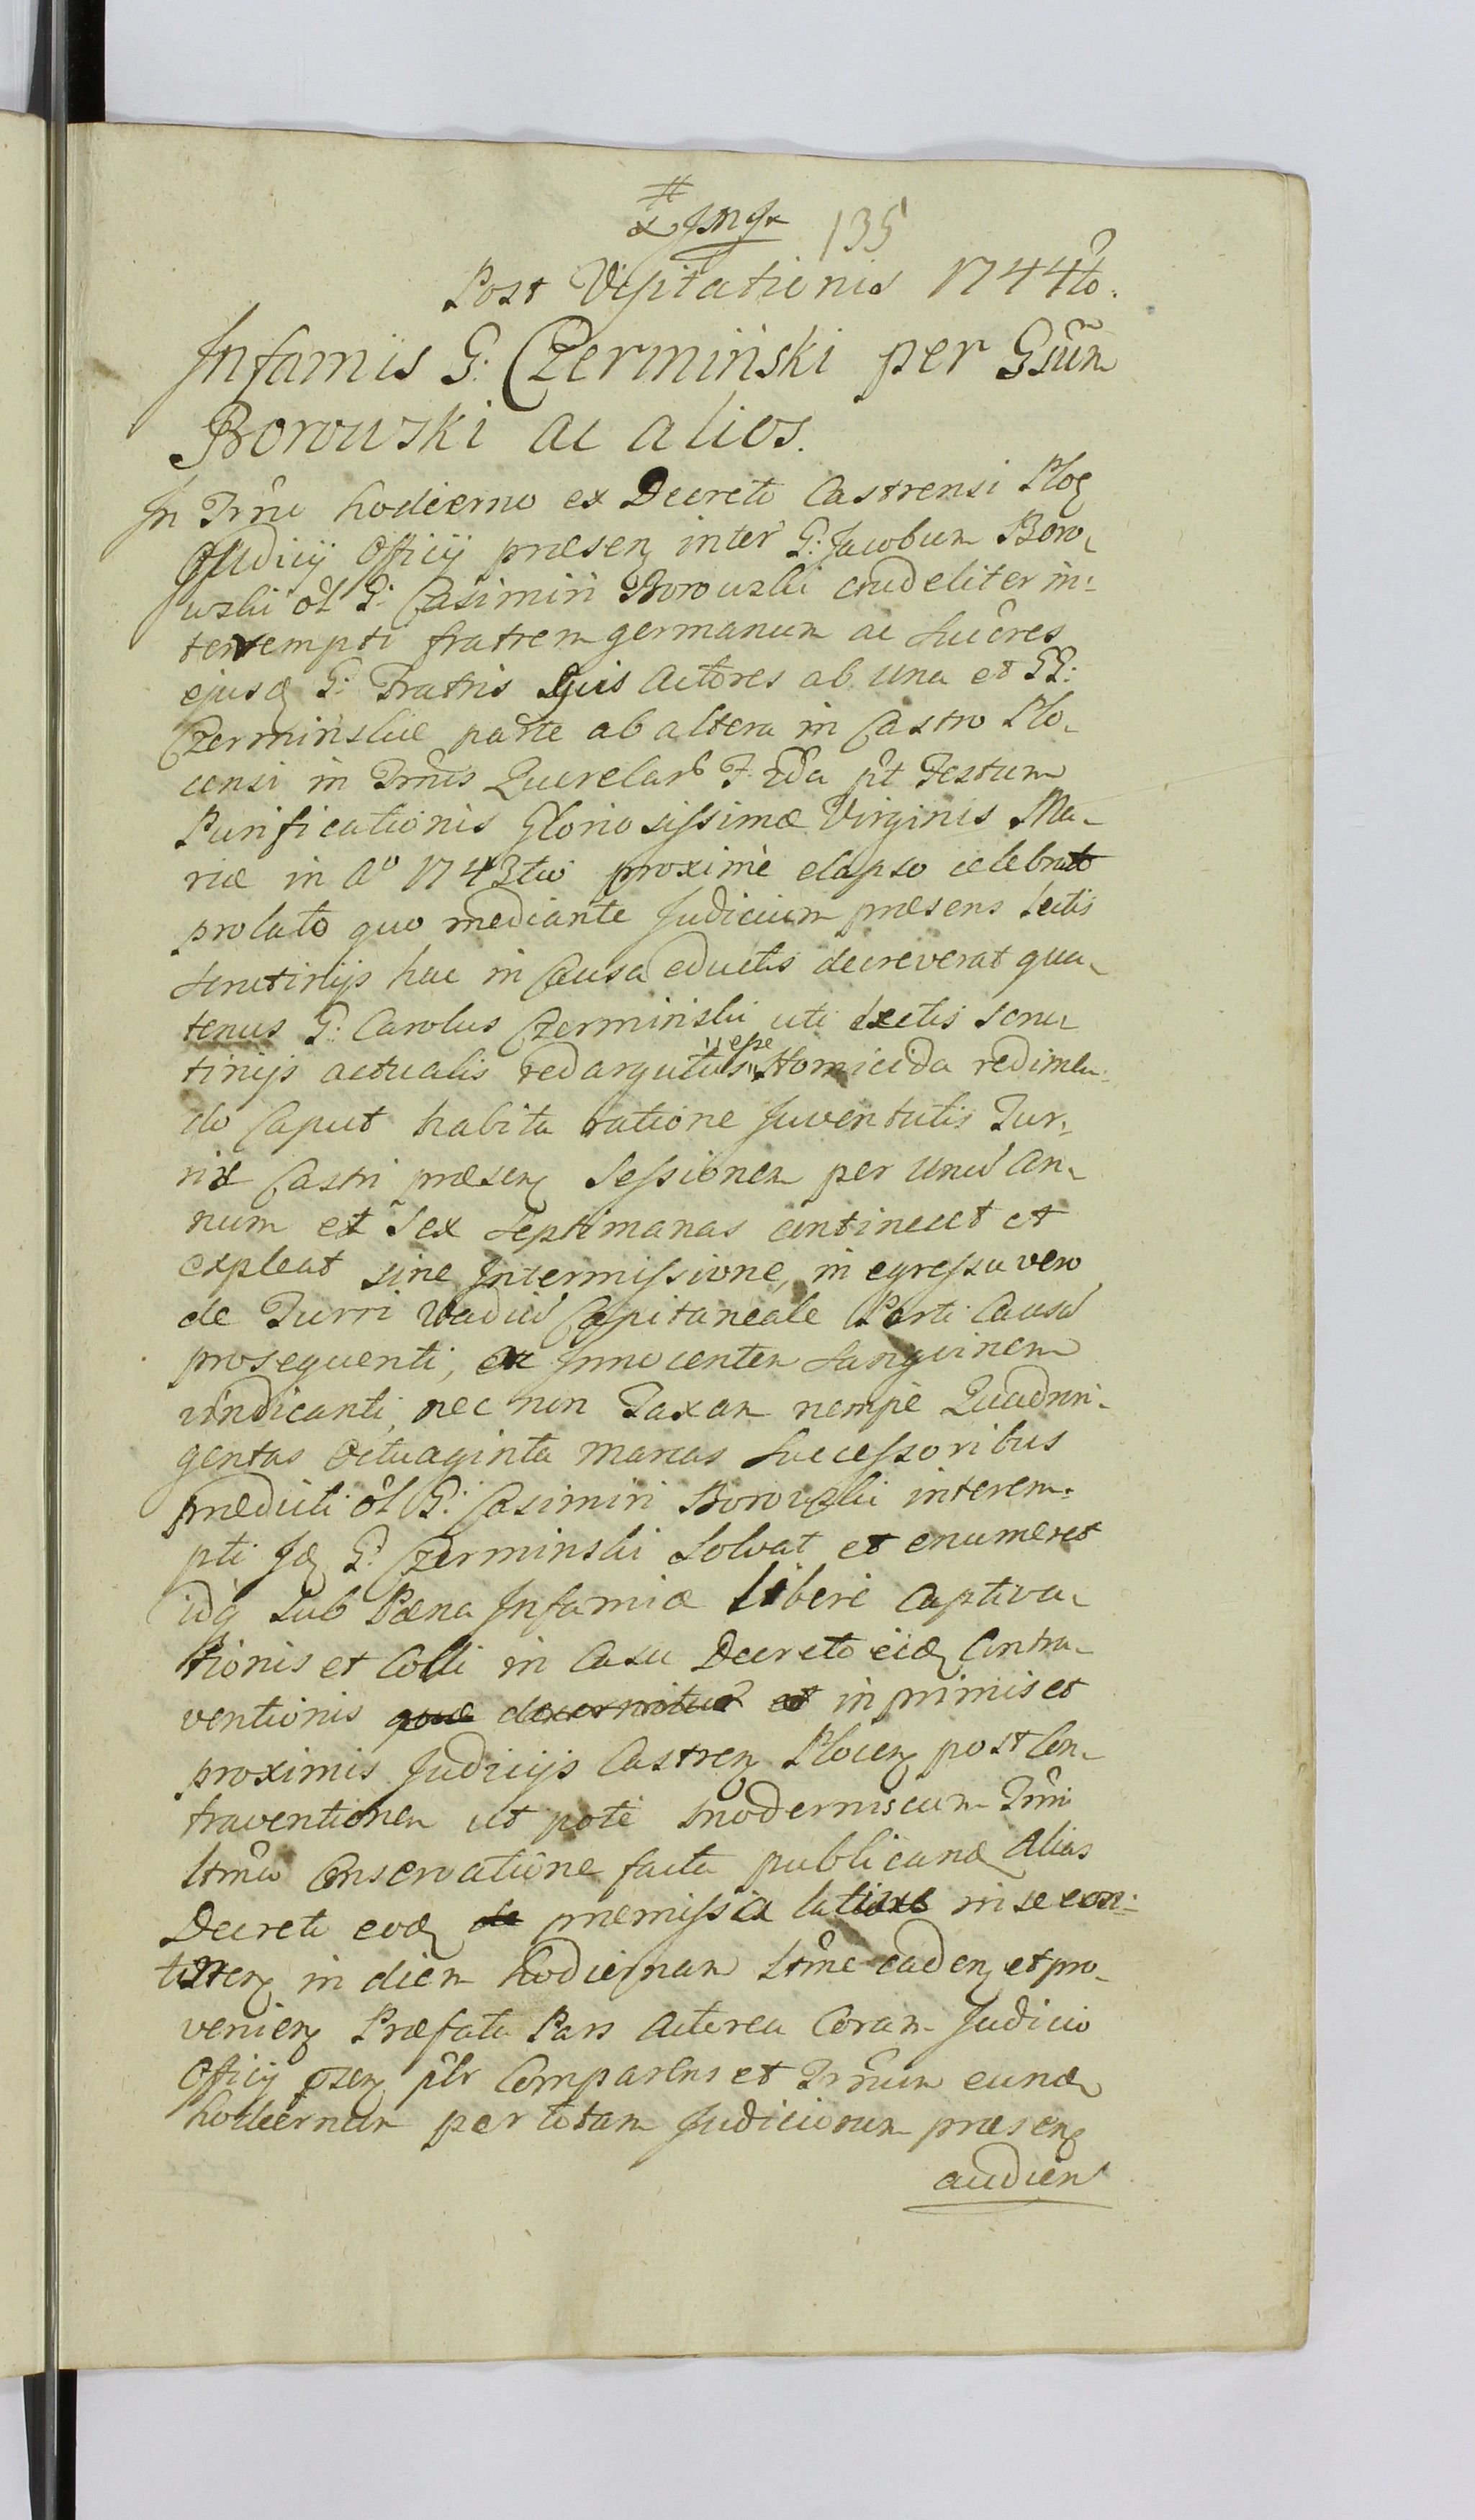 135
Post Visitationis 1744to.
Infamis G: Czermiński per Gsum
Borowski ac alios.
In Trno hodierno ex Decreto Castrensi Ploc
Judicij Officij præsen inter G: Jacobum Boro-
wski ol G: Casimiri Borowski crudeliter in-
terempti fratrem germanum ac Sucres
ejusd G: Fratris Sui Actores ab una et GG:
Czerminskie parte ab altera in Castro Plo-
censi in Trnis Querelar F. 2da pt Festum
Purificationis Gloriosissimæ Virginis Ma-
riæ in Ao 1743tio proxime elapso celebrato
prolato quo mediante Judicium præsens lectis
Scrutinijs hac in Causa eductis decreverat qua-
tenus G: Carolus Czerminski uti lectis scru-
tinijs actualis redargutus esse Homicida redimen-
do Caput habita ratione Juventutis Tur-
ris Castri præsen Sessionem per unu An-
num et Sex Septimanas contineret et
expleat sine Intermissione, in egressu vero
de Turri Vadiu Capitaneale Parti Causa
prosequenti, et Innocentem Sanguinem
vindicanti, nec non Taxam nempe Quadrin-
gentas Octuaginta Marcas Successoribus
prædicti ol G: Casimiri Borowski interem-
pti Id G: Czerminski Solvat et enumeret
idq Sub Pæna Infamiæ liberè Captiva-
tionis et Colli in Casu Decreto eid Contra-
ventionis quæ decernitur et in primis et
proximis Judicijs Castren Plocen post Con-
traventionem ut potè modernis cum Trni
ltmo Conservatione facta publicand Alias
Decreti eod de præmissis latius in se con-
tinen in diem hodiernam ltme caden et pro-
venien Præfata Pars Actorea Coram Judicio
Officij psen plr Comparens et Trnum eund
hodiernum per totam Judiciorum præsen
audien